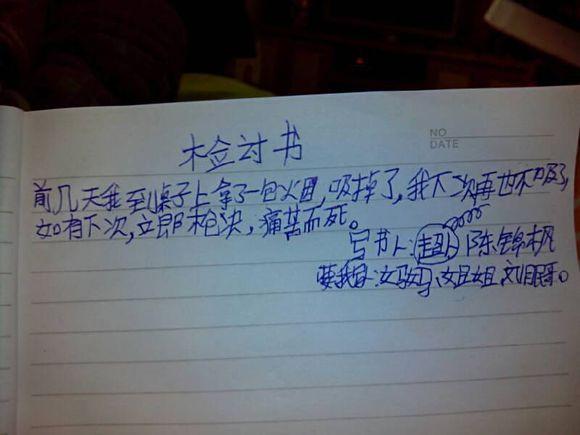 检讨书
NO
DATE
前几天我到桌子上拿了一包火因,吸掉了,我下次再也不吸了,
如有下次,立即枪决,痛苦而死。
写书人: 陈锦枫
要我写:妈妈、姐姐、刘眼哥。